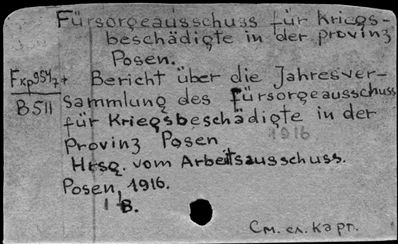 Fürsorgeausschuss für Kriegs-
beschädigte in der provinz
Posen.
Bericht über die Jahresver-
B511
sammlung des fürsorgeausschuss
für Kriegsbeschädigte in der
Provinz Posen
1916
Hrsg. vom Arbeitsausschuss.
Posen, 1916.
1 B.
См. сл. карт.